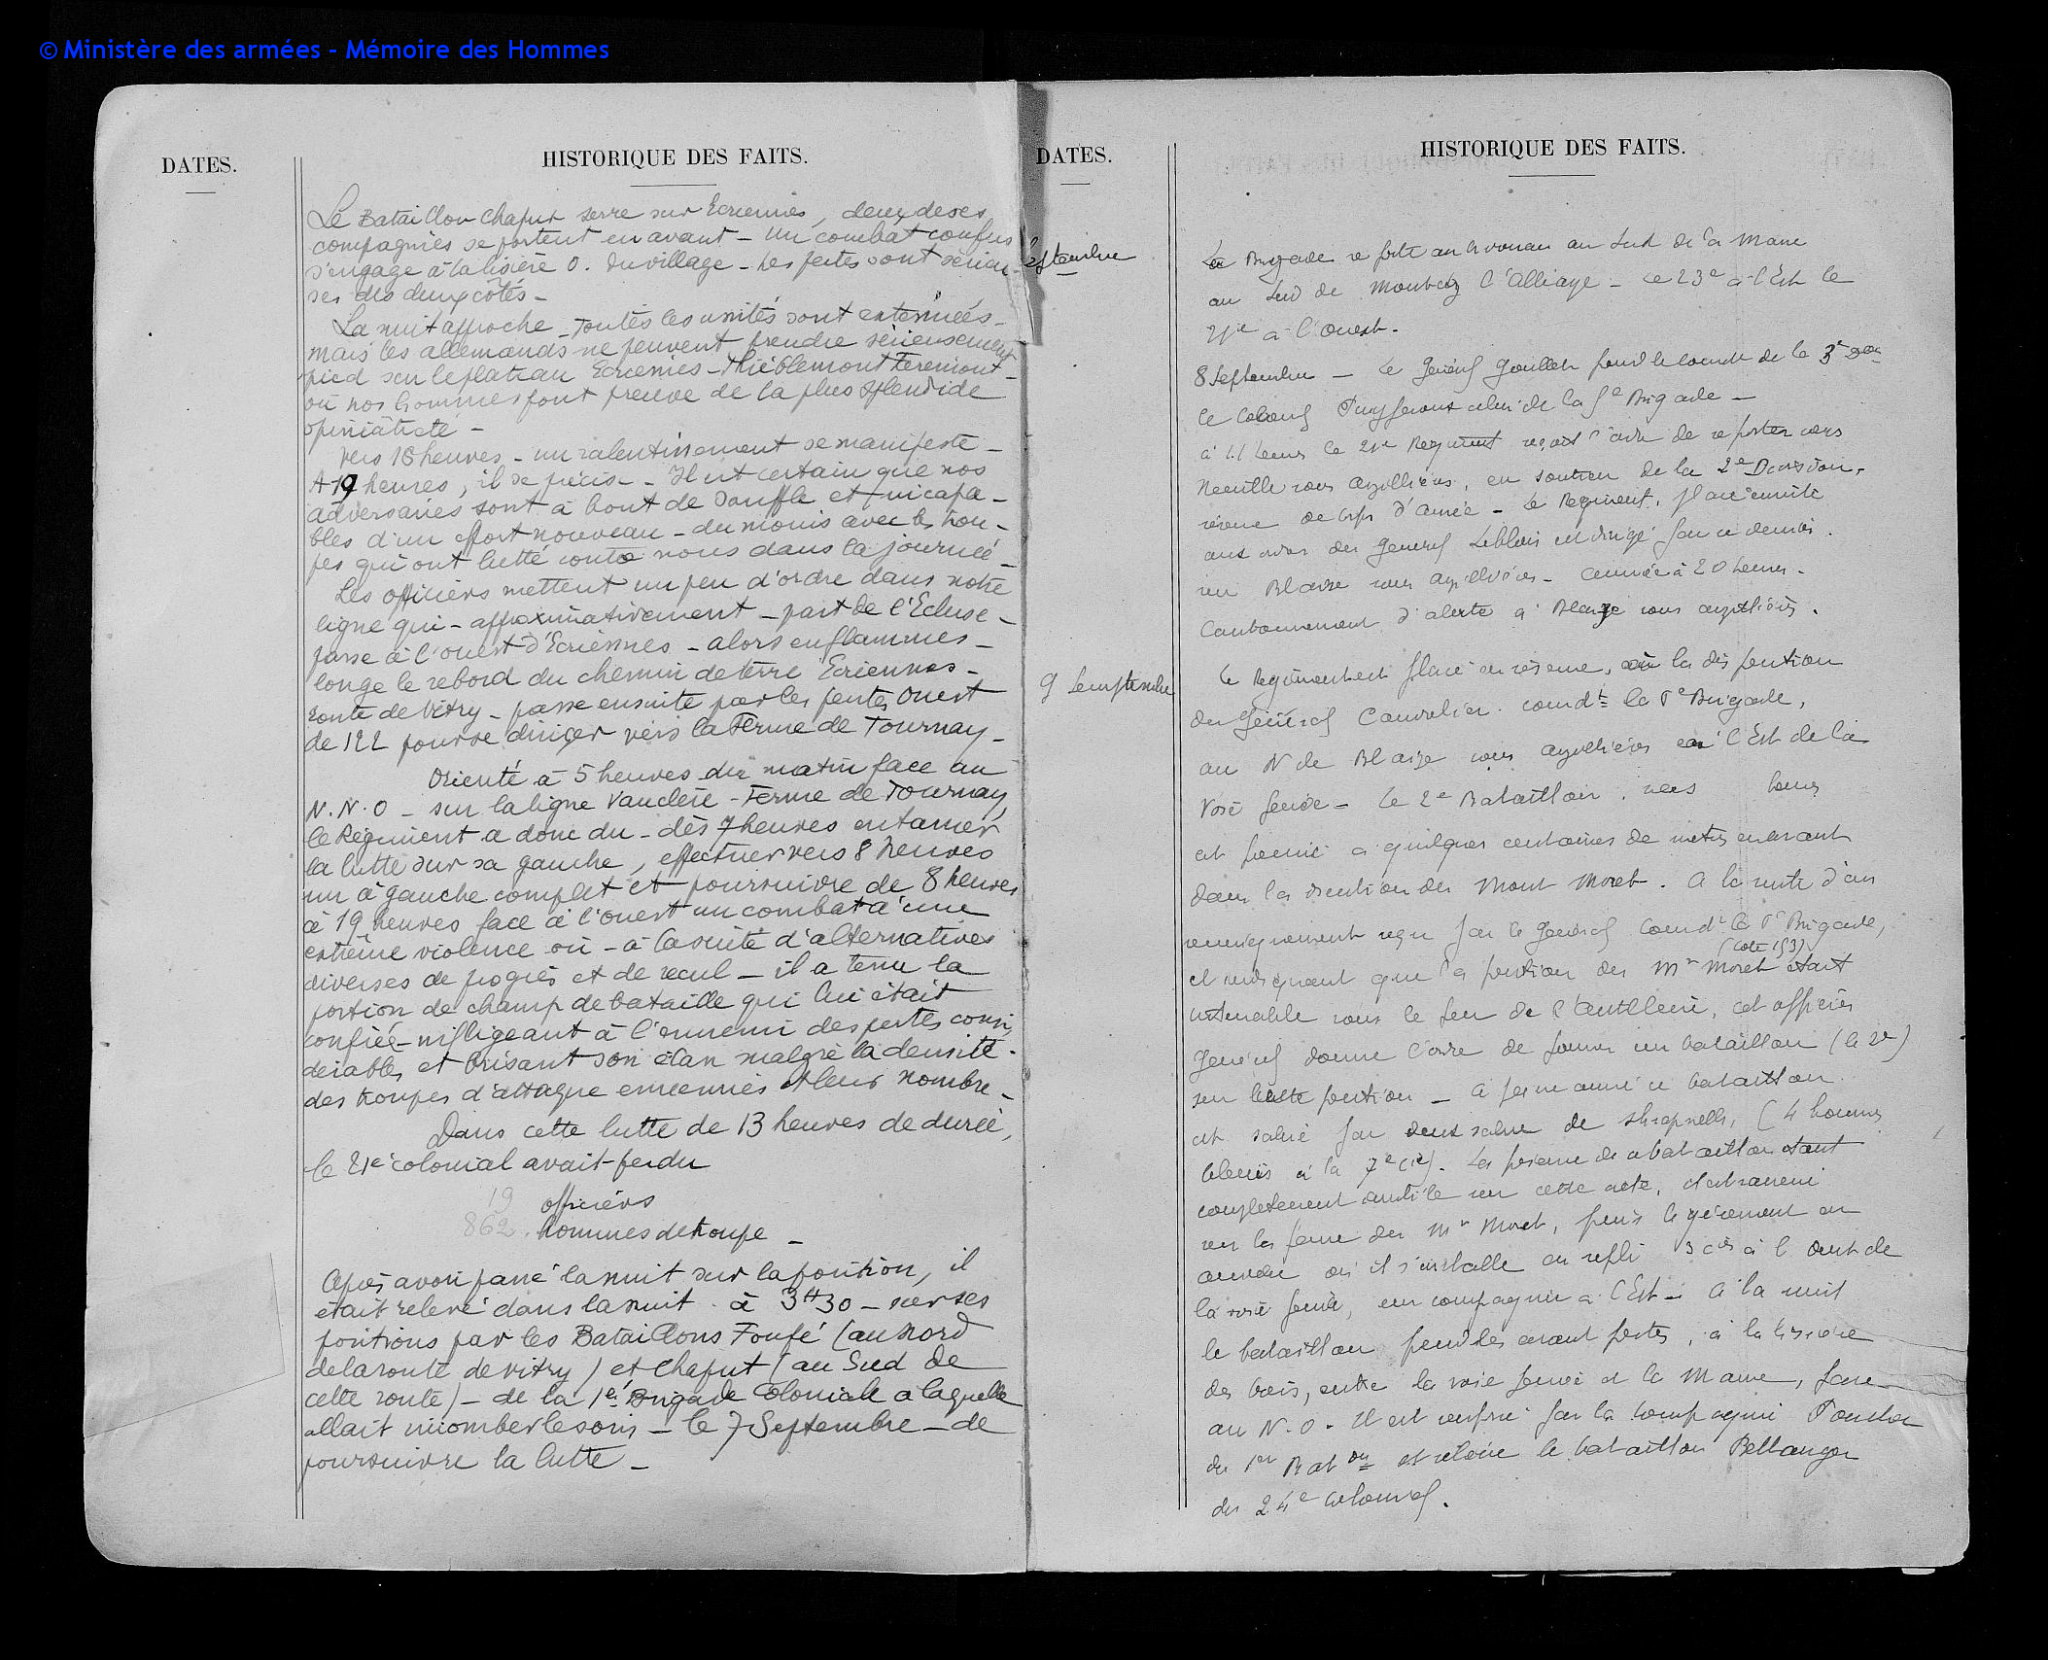 © Ministère des armées - Mémoire des Hommes
DATES.
HISTORIQUE DES FAITS.
Le Bataillon Chaput serre sur Ecriennes, deux de ses
compagnies se portent en avant - Un combat confus
s'engage à la lisière O. du village - Les pertes sont sérieu-
ses des deux côtés -
La nuit approche - Toutes les unités sont exténuées -
Mais les allemands ne peuvent prendre sérieusement
pied sur le plateau Ecriennes - Thiéblemont Faremont -
où nos hommes font preuve de la plus splendide
opiniâtreté -
Vers 18 heures - un ralentissement se manifeste -
A 19 heures, il se précise - Il est certain que nos
adversaires sont à bout de souffle et incapa-
bles d'un effort nouveau - du moins avec les trou-
pes qui ont lutté contre nous dans la journée -
Les officiers mettent un peu d'ordre dans notre
ligne qui - approximativement - part de l'Ecluse -
passe à l'ouest d'Ecriennes - alors en flammes -
longe le rebord du chemin de terre Ecriennes -
route de Vitry - passe ensuite par les pentes Ouest
de 122 pour se diriger vers la Ferme de Tournay -
Orienté à 5 heures du matin face au
N.N.O - sur la ligne Vauclerc - Ferme de Tournay,
le Régiment a donc du - dès 7 heures entamer
la lutte sur sa gauche, effectuer vers 8 heures
un à gauche complet et poursuivre de 8 heures
à 19 heures face à l'ouest un combat d'une
extrême violence où - à la suite d'alternatives
diverses de progrès et de recul - il a tenu la
portion de champ de bataille qui lui était
confiée - infligeant à l'ennemi des pertes consi-
dérables et brisant son élan malgré la densité
des troupes d'attaque ennemies et leur nombre -
Dans cette lutte de 13 heures de durée,
le 21e colonial avait perdu
19 officiers
862 hommes de troupe -
Après avoir passé la nuit sur la position, il
était relevé dans la nuit à 3H30 - sur ses
positions par les Bataillons Foufé (au Nord
de la route de Vitry) et Chaput (au Sud de
cette route) - de la 1ère Brigade Coloniale à laquelle
allait incomber le soin - le 7 Septembre - de
poursuivre la lutte -
DATES.
HISTORIQUE DES FAITS.
septembre
La Brigade se porte au bivouac au Sud de la Marne
au Sud de l'Abbaye - Le 23e à l'Est le
21e à l'Ouest.
8 Septembre - Le Général Goullet prend le comdt de la 3e Don
le Colonel Puypéroux celui de la 5e Brigade -
à 11 heures le 21e Régiment reçoit l'ordre de se porter vers
Neuville sous Arzillières, en soutien de la 2e Division,
réserve de corps d'armée - Le Régiment, placé ensuite
aux ordres du Général Leblois est dirigé par ce dernier
sur Blaise sous Arzillières - arrivée à 20 heures -
Cantonnement d'alerte à Blaise sous Arzillières.
9 Semptembre
Le Régiment est placé en réserve, à la disposition
du Général comdt la 1e Brigade,
au N de Blaise sous Arzillières à l'Est de la
Voie ferrée - Le 2e Bataillon, vers heures
est porté à quelques centaines de mètres en avant
dans la direction du Mont Moret. A la suite d'un
renseignement reçu par le Général Comdt la 1e Brigade,
et indiquant que la position du Mt Moret (cote 153) était
intenable sous le feu de l'Artillerie, cet officier
Général donne l'ordre de porter un bataillon (le 2e)
sur cette position - A peine arrivé ce bataillon
est salué par deux salves de shrapnells, (4 hommes
blessés à la 7e Cie). La présence de ce bataillon étant
complètement inutile sur cette crête, il est ramené
sur les pentes du Mt Moret, puis légèrement en
arrière où il s'installe en repli 3 Cies à l'Ouest de
la voie ferrée, une compagnie à l'Est - A la nuit
le bataillon prend les avant postes, à la lisière
des bois, entre la voie ferrée et la Marne, face
au N.O. Il est renforcé par la Compagnie
du 1er Baton et relève le bataillon Bellanger
du 24e Colonial.